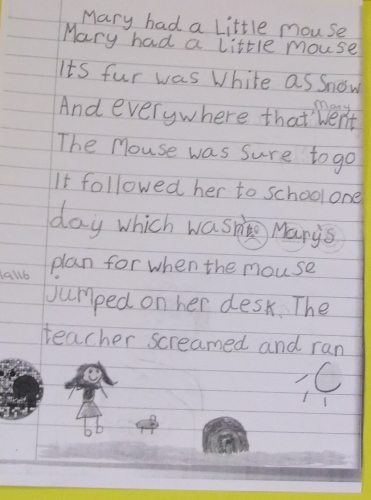 Mary had a Little mouse
Mary had a Little mouse
Its fur was White as Snow
And everywhere that Mary went
The Mouse was sure to go
It followed her to school one
day which wasn't Mary's
plan for when the mouse
Jumped on her desk. The
teacher screamed and ran